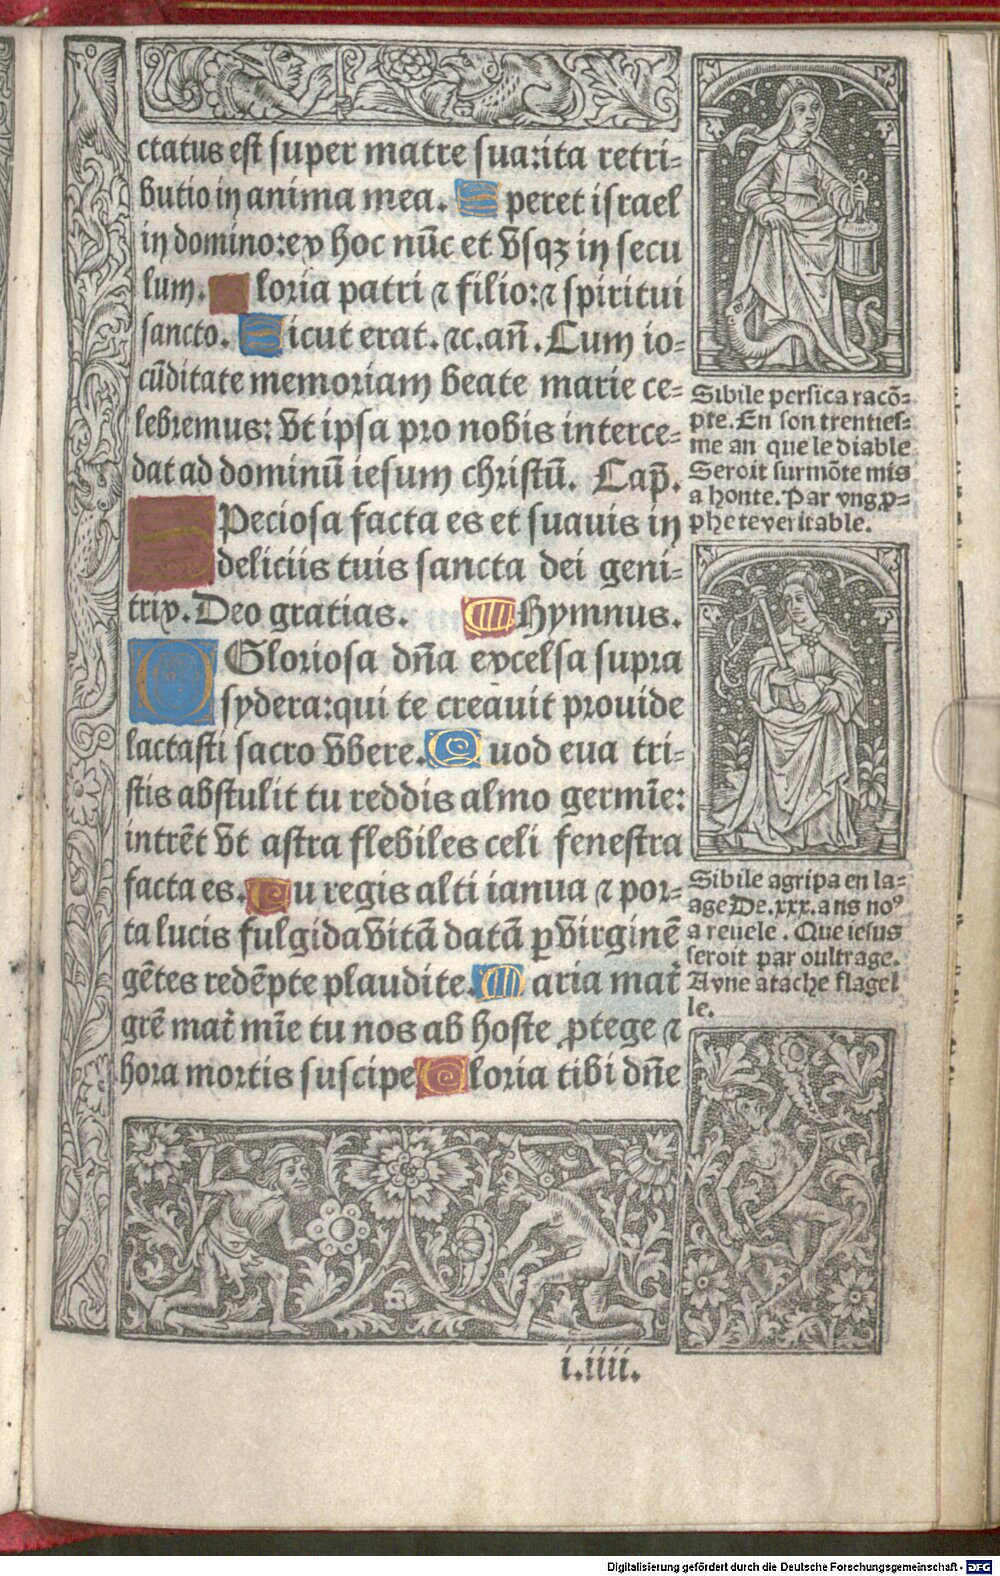 ctatus est super matre sua:ita retri-
butio in anima mea. Speret israel
in domino:ex hoc nūc et vsqꝫ in secu
lum. Gloria patri ⁊ filio:⁊ spiritui
sancto. Sicut erat. ⁊c. añ. Cum io-
cūditate memoriam beate marie ce-
lebremus: vt ipsa pro nobis interce-
dat ad dominū iesum christū. Cap̄.
SPeciosa facta es et suauis in
deliciis tuis sancta dei geni-
trix. Deo gratias. Hymnus.
O Gloriosa dña excelsa supra
sydera:qui te creauit prouide
lactasti sacro vbere. Quod eua tri-
stis abstulit tu reddis almo germīe:
intrēt vt astra flebiles celi fenestra
facta es. Tu regis alti ianua ⁊ por-
ta lucis fulgida vitā datā ꝑ virginē
gētes redēpte plaudite. Maria mat̄
grē mat̄ mīe tu nos ab hoste ꝓtege ⁊
hora mortis suscipe Gloria tibi dñe
Sibile persica racō-
pte. En son trenties-
me an que le diable
Seroit surmōte mis
a honte. Par vng ꝓ-
phete veritable.
Sibile agripa en la-
age De .xxx. ans noꝰ
a reuele. Que iesus
seroit par oultrage.
A vne atache flagel
le.
i.iiii.
Digitalisierung gefördert durch die Deutsche Forschungsgemeinschaft - DFG